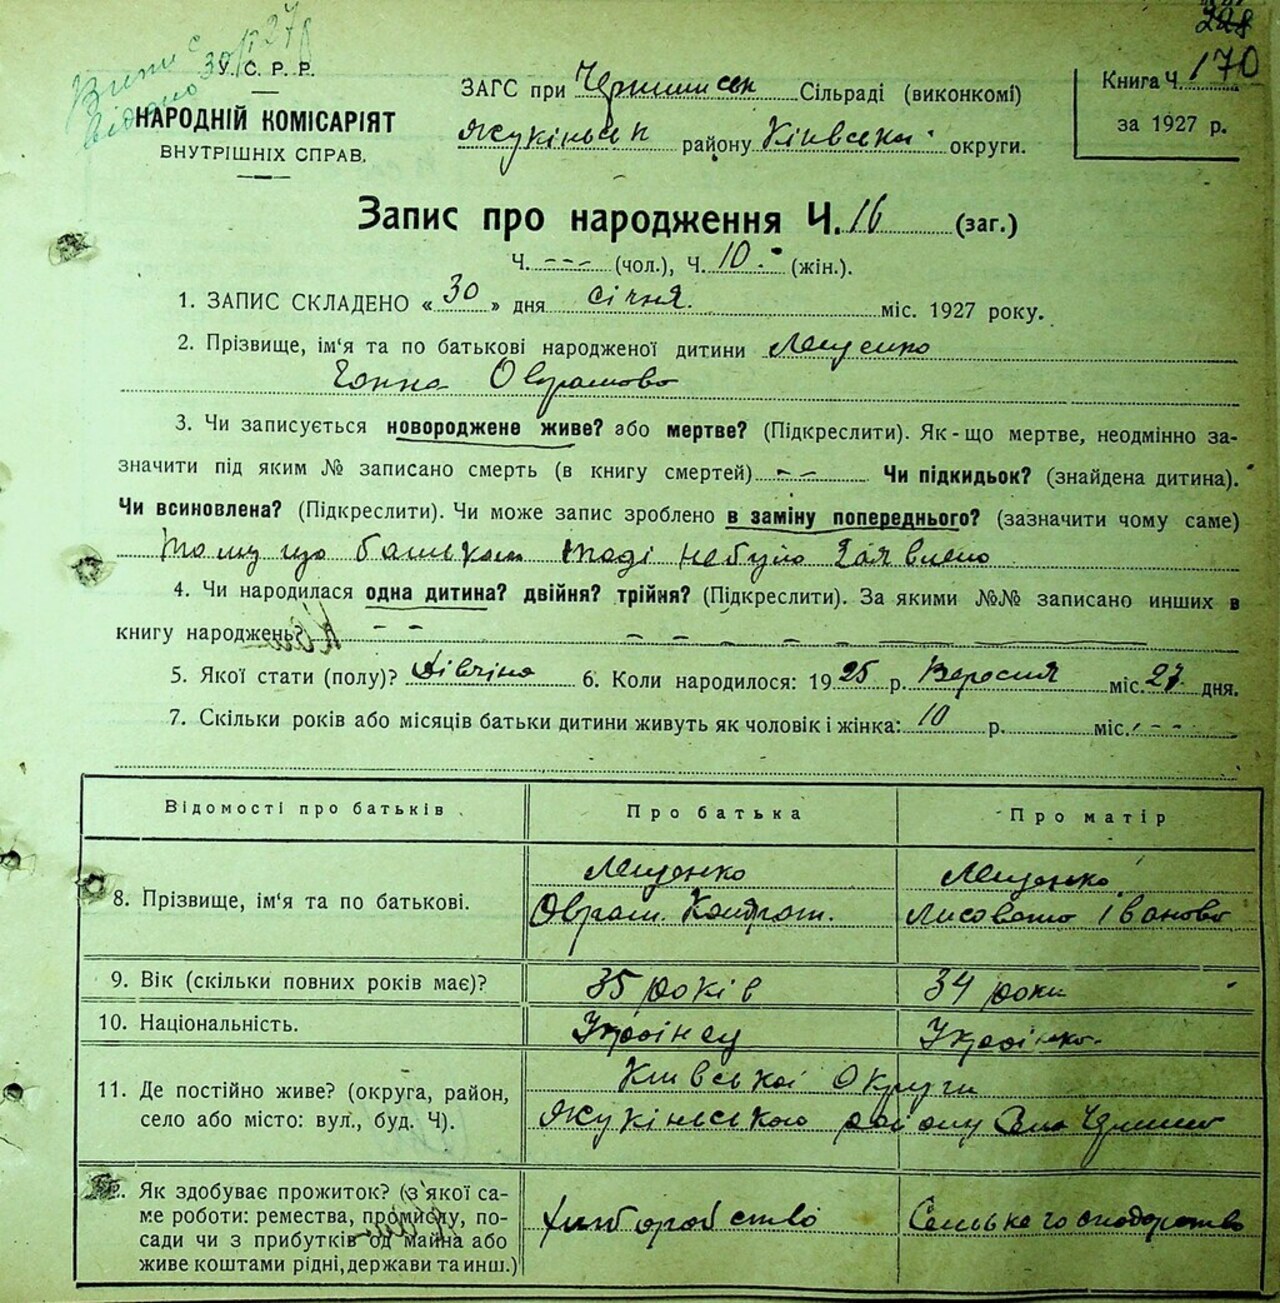 228
170
У. С. Р. Р.
НАРОДНІЙ КОМІСАРІЯТ
ВНУТРІШНІХ СПРАВ.
ЗАГС при Сільраді (виконкомі)
району Київськ. округи.
Книга Ч. 170
за 1927 р.
Запис про народження Ч. 16 (заг.)
Ч. --- (чол.), Ч. 10 - (жін.).
1. ЗАПИС СКЛАДЕНО « 30 » дня січня міс. 1927 року.
2. Прізвище, ім'я та по батькові народженої дитини Лещенко
Ганна Оврамово
3. Чи записується новороджене живе? або мертве? (Підкреслити). Як-що мертве, неодмінно за-
значити під яким № записано смерть (в книгу смертей) -- Чи підкидьок? (знайдена дитина).
Чи всиновлена? (Підкреслити). Чи може запис зроблено в заміну попереднього? (зазначити чому саме)
Тому що батьком тоді небуло заявлено
4. Чи народилася одна дитина? двійня? трійня? (Підкреслити). За якими №№ записано инших в
книгу народжень? - - - - - - -
5. Якої стати (полу)? дівчіна 6. Коли народилося: 1925 р. Вересня міс. 27 дня.
7. Скільки років або місяців батьки дитини живуть як чоловік і жінка: 10 р. міс. - - -
Відомості про батьків. Про батька Про матір
8. Прізвище, ім'я та по батькові.
Лещенко Лещенко
Оврам. Кондрат. Лисовата Іваново
9. Вік (скільки повних років має)? 35 років 34 роки
10. Національність. Українец Українка
11. Де постійно живе? (округа, район,
село або місто: вул., буд. Ч).
Київської Округи
району Село
12. Як здобуває прожиток? (з якої са-
ме роботи: ремества, промислу, по-
сади чи з прибутків од майна або
живе коштами рідні, держави та инш.)
Хлиборобство Сельске господарство